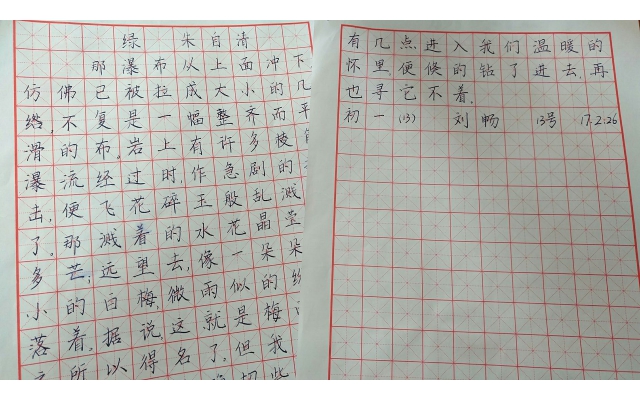 绿 朱自清
那瀑布从上面冲下
仿佛已被拉成大小的几
绺,不复是一幅整齐而平
滑的布。岩上有许多棱
瀑流经过时,作急剧的
击,便飞花碎玉般乱溅
了。那溅着的水花晶莹
多芒;远望去,像一朵朵
小的白梅,微雨似的纷
落着。据说,这就是梅
之所以得名了。但我
切些
有几点进入我们温暖的
怀里,便候的钻了进去,再
也寻它不着。
初一(13) 刘畅 13号 17.2.26